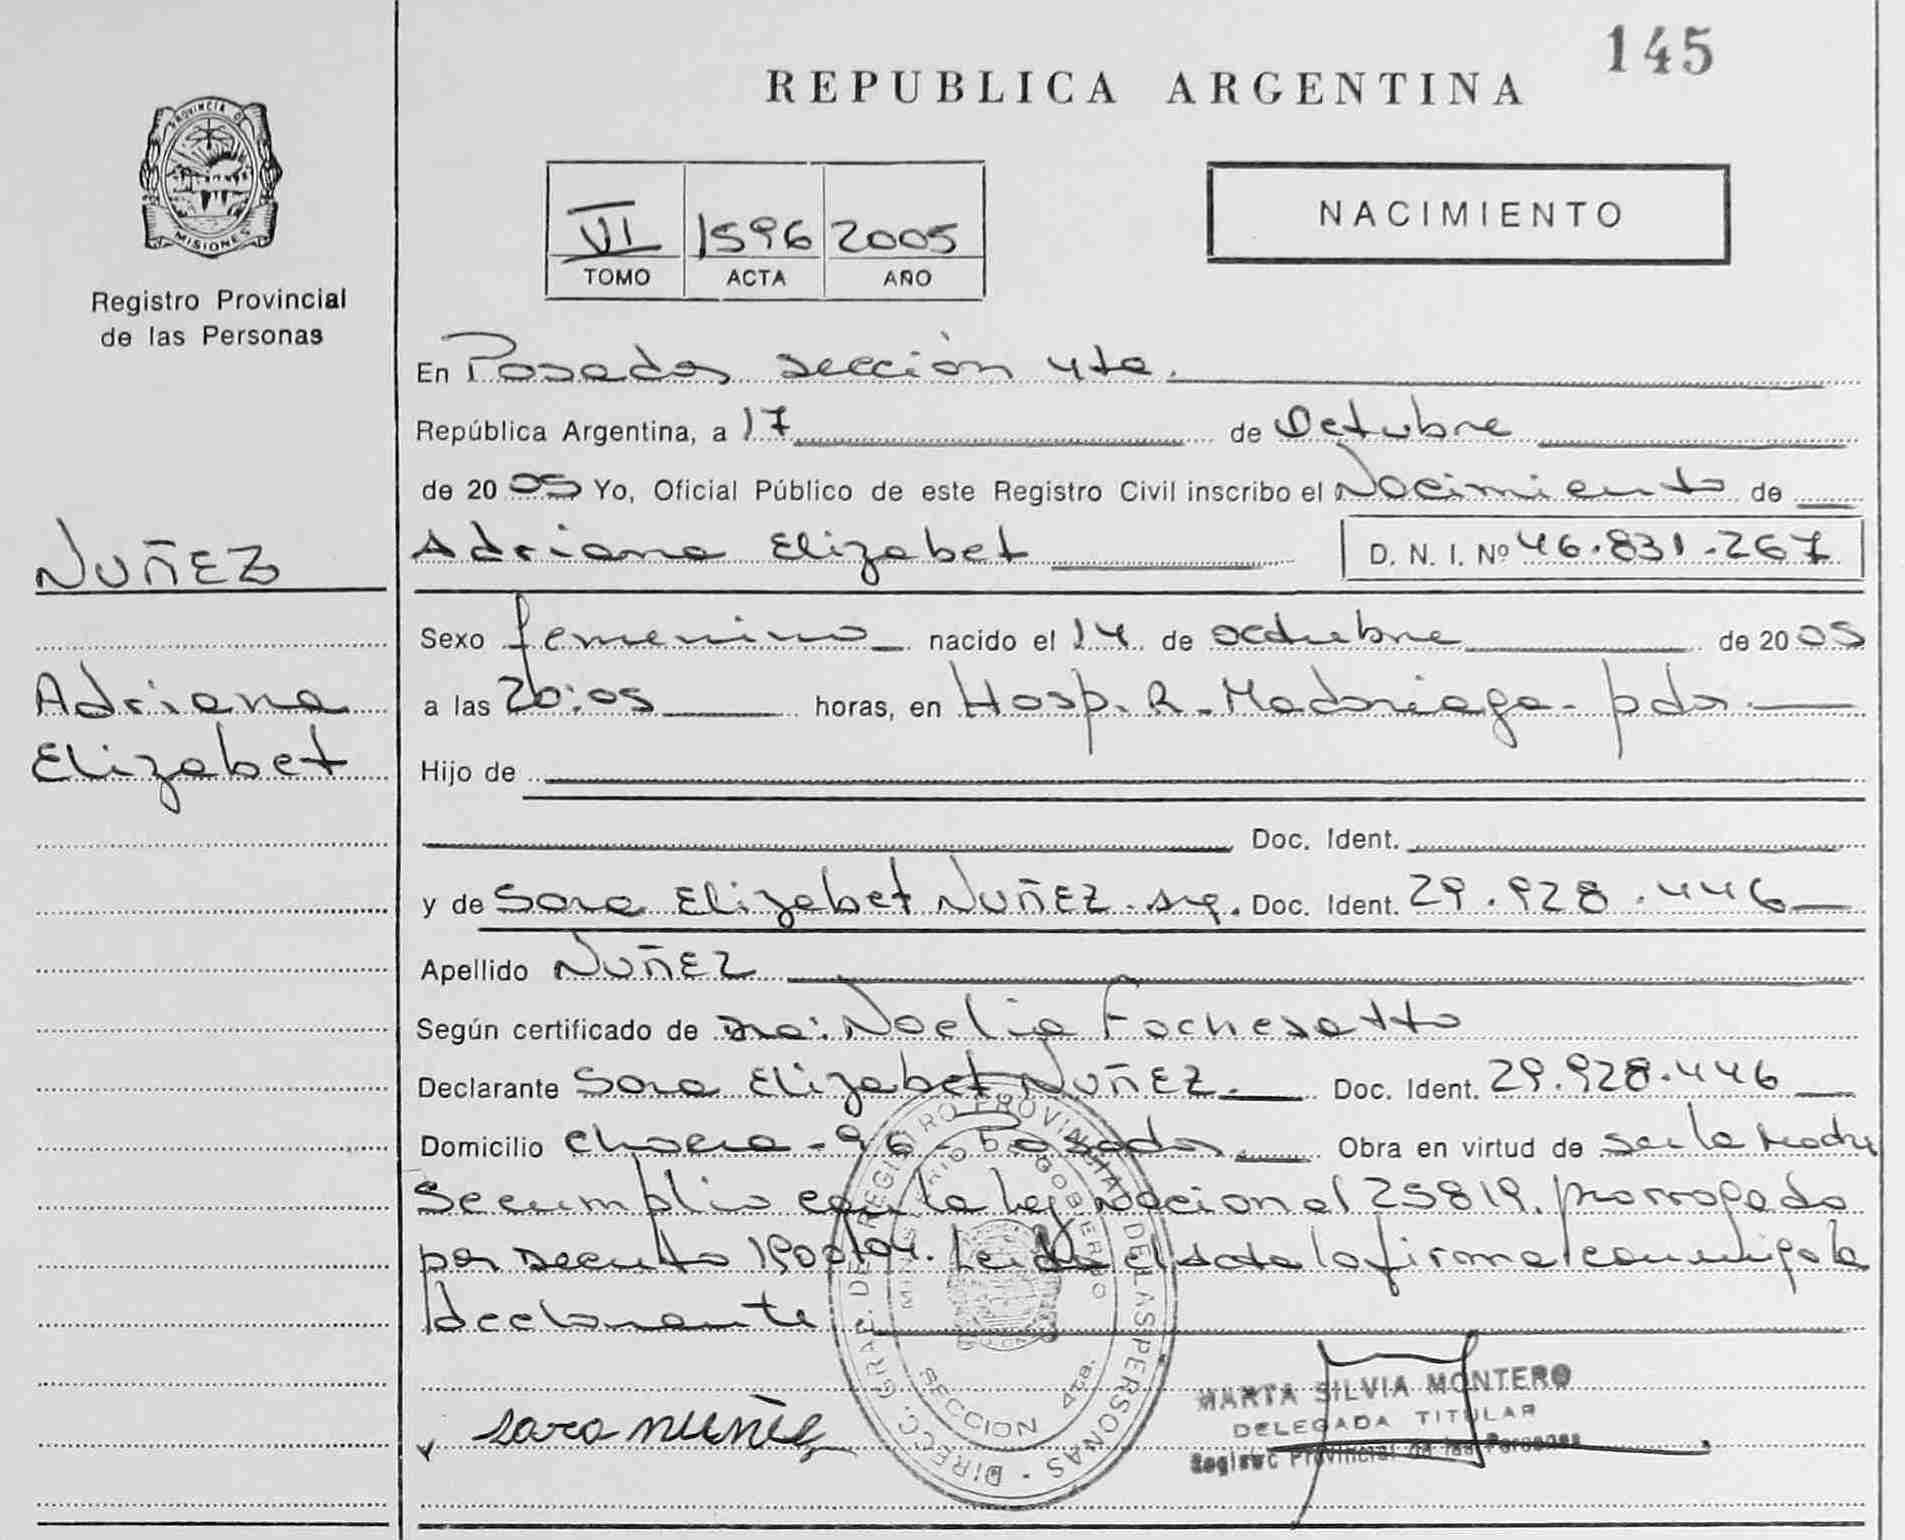 145
REPUBLICA ARGENTINA
PROVINCIA DE
MISIONES
Registro Provincial
de las Personas
VI 1596 2005
TOMO ACTA AÑO
NACIMIENTO
En Posadas sección 4ta.
República Argentina, a 17 de Octubre
de 2005 Yo, Oficial Público de este Registro Civil inscribo el Nacimiento de
NUÑEZ
Adriana Elizabet D. N. I. Nº 46.831.267
Sexo femenino nacido el 14 de octubre de 2005
Adriana
a las 20:05 horas, en Hosp. R. Madariaga - pdas.
Elizabet
Hijo de
Doc. Ident.
y de Sara Elizabet NUÑEZ. arg. Doc. Ident. 29.928.446
Apellido NUÑEZ
Según certificado de Dra: Noelia Fochesatto
Declarante Sara Elizabet NUÑEZ. Doc. Ident. 29.928.446
Domicilio Chacra - 96 - Posadas Obra en virtud de ser la Madre
Se cumplio con la ley Nacional 25819. prorrogada
por Decreto 1900/04. Leida el Acta la firma conmigo la
declarante
DIRECC. GRAL. DE REGISTRO PROVINCIAL DE LAS PERSONAS
MINISTERIO DE GOBIERNO
SECCION 4ta.
sara nuñez
MARTA SILVIA MONTERO
DELEGADA TITULAR
Registro Provincial de las Personas